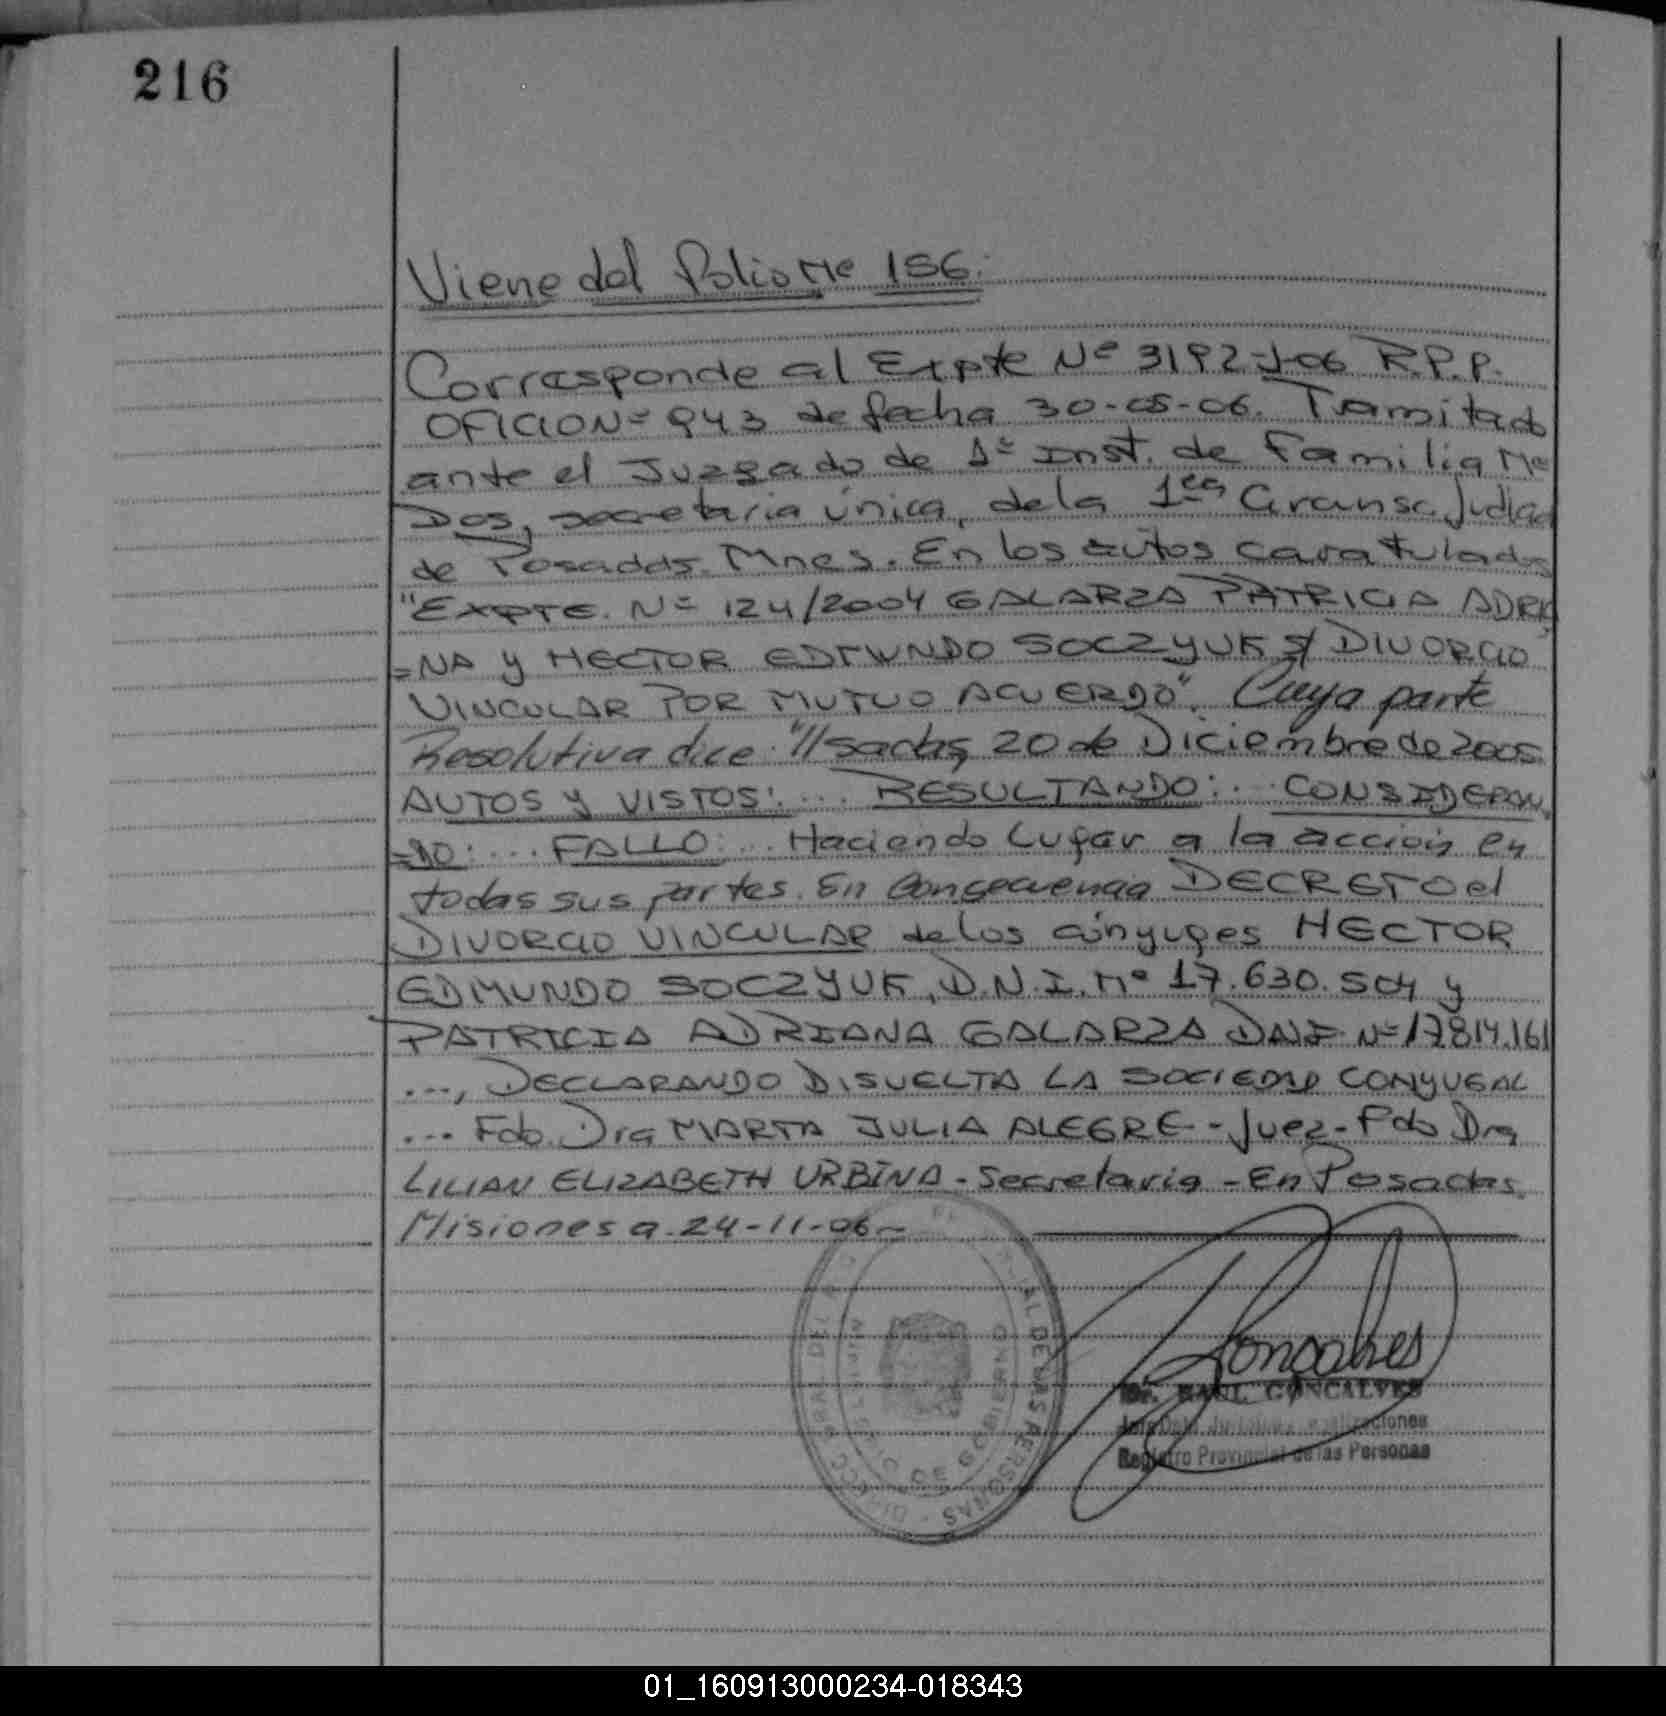 216
Viene del Folio Nº 156.
Corresponde al Expte Nº 3192-J-06 R.P.P.
OFICIO Nº 943 de fecha 30-05-06. Tramitado
ante el Juzgado de 1º Inst. de Familia Nº
Dos, secretaria única, de la 1era Circunsc. Judicial
de Posadas. Mnes. En los autos caratulados
"EXPTE. Nº 124/2004 GALARZA PATRICIA ADRIA
=NA y HECTOR EDMUNDO SOCZYUK S/ DIVORCIO
VINCULAR POR MUTUO ACUERDO". Cuya parte
Resolutiva dice: "//sadas, 20 de Diciembre de 2005.
AUTOS y VISTOS:... RESULTANDO:... CONSIDERAN
=DO:... FALLO:... Haciendo Lugar a la acción en
todas sus partes. En Consecuencia DECRETO el
DIVORCIO VINCULAR de los cónyuges HECTOR
EDMUNDO SOCZYUK, D.N.I. Nº 17.630.504 y
PATRICIA ADRIANA GALARZA DNI Nº 17.814.161
..., DECLARANDO DISUELTA LA SOCIEDAD CONYUGAL
... Fdo. Dra MARTA JULIA ALEGRE - Juez - Fdo Dra
LILIAN ELIZABETH URBINA - Secretaria - En Posadas,
Misiones a 24-11-06 ~
MINISTERIO DE GOBIERNO
DE LAS PERSONAS
Goncalves
Dr. RAUL GONCALVES
Registro Provincial de las Personas
01_160913000234-018343